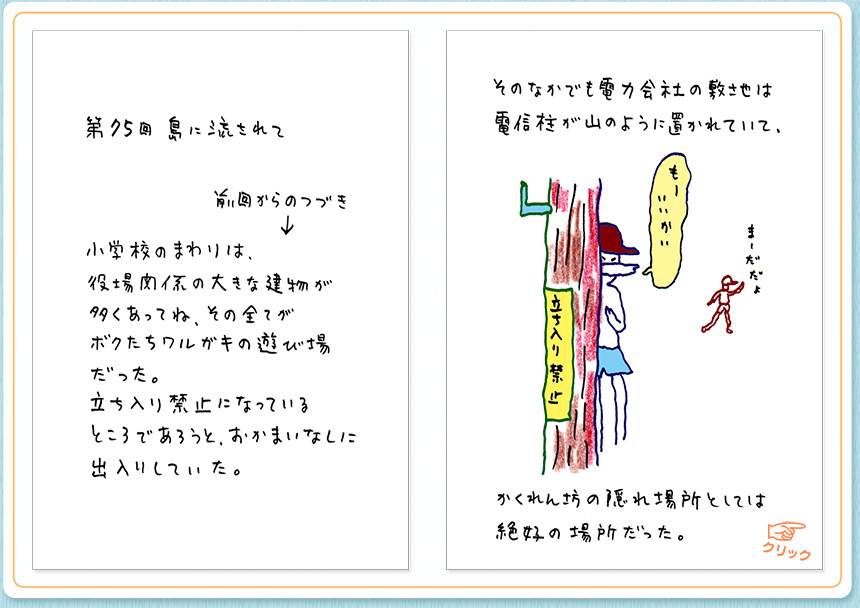 第75回 島に流されて
前回からのつづき
小学校のまわりは、
役場関係の大きな建物が
多くあってね、その全てが
ボクたちワルガキの遊び場
だった。
立ち入り禁止になっている
ところであろうと、おかまいなしに
出入りしていた。
そのなかでも電力会社の敷地は
電信柱が山のように置かれていて、
もーいいかい
まーだだよ
立ち入り禁止
かくれん坊の隠れ場所としては
絶好の場所だった。
クリック